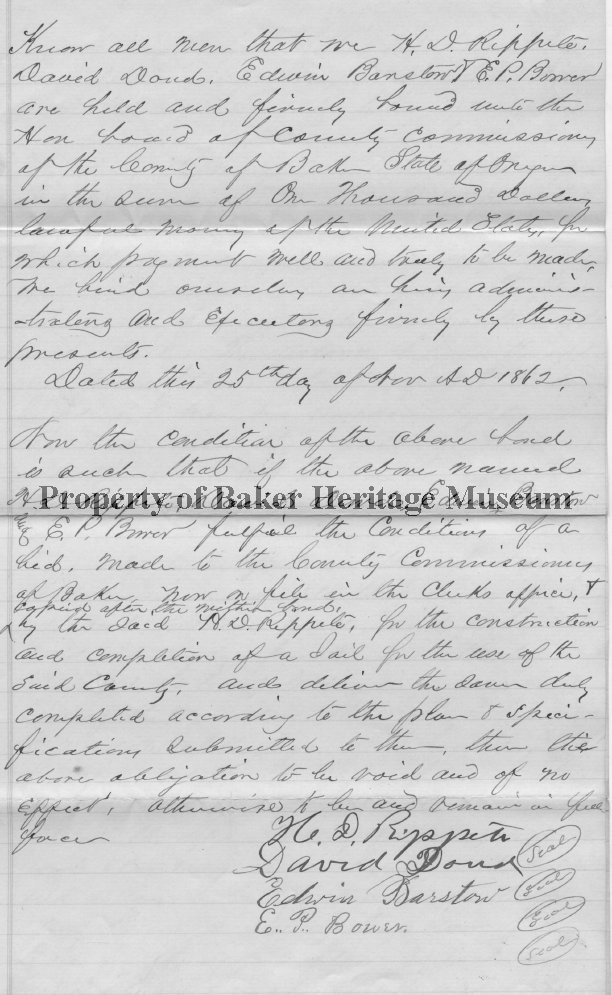 Know all men that we H. D. Rippeto.
David Doud. Edwin Barstow & E. P. Bower
are held and firmly bound unto the
Hon board of County Commissioners
of the County of Baker State of Oregon
in the sum of One Thousand Dollars
lawful money of the United States, for
which payment well and truly to be made,
We bind ourselves our heirs adminis-
-trators and Executors firmly by these
presents.
Dated this 25th day of Nov AD 1862.
Now the condition of the above bond
is such that if the above named
H. D. Edwin Barstow
Property of Baker Heritage Museum
& E. P. Bower fulfil the Conditions of a
bid. made to the County Commissioners
of Baker now on file in the Clerks office, &
copied after the within bond,
by the said H. D. Rippeto, for the construction
and completion of a Jail for the use of the
said County, and deliver the same duly
completed according to the plan & speci-
fications submitted to them, then the
above obligation to be void and of no
Effect, otherwise to be and remain in full
force
H. D. Rippeto Seal
David Doud Seal
Edwin Barstow Seal
E. P. Bower. Seal